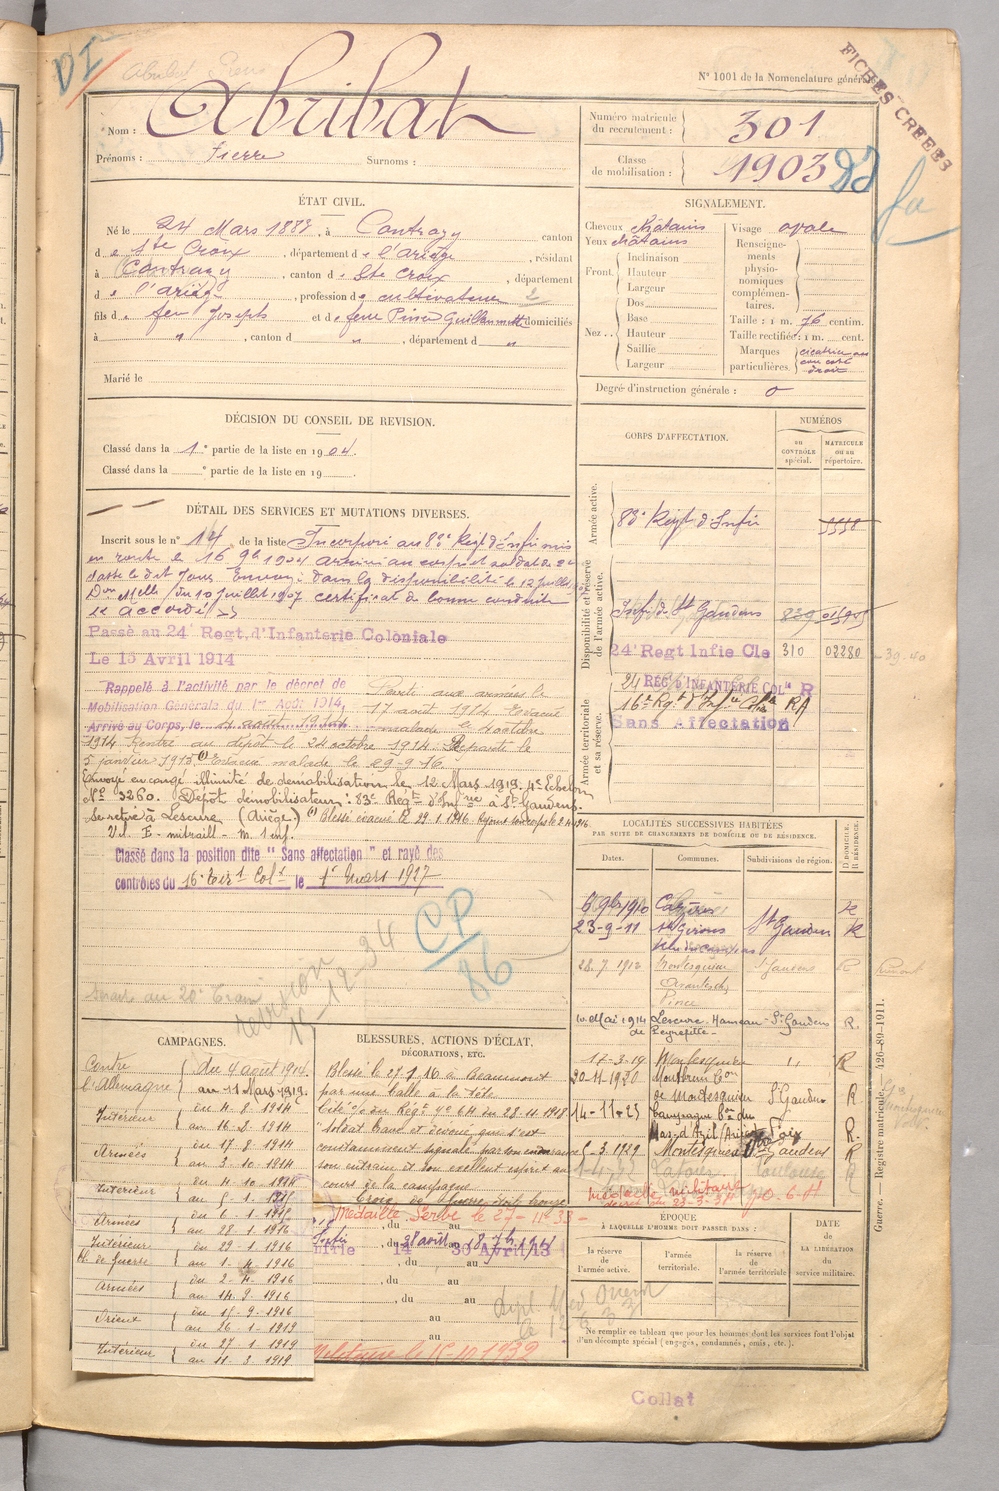 DI
N° 1001 de la Nomenclature générale
FICHES CRÉÉES
Nom : Abribat
Prénoms : Pierre Surnoms :
Numéro matricule du recrutement : 301
Classe de mobilisation : 1903
ÉTAT CIVIL.
Né le 24 Mars 1883, à Contrazy canton
de Ste Croix, département de l'ariège, résidant
à Contrazy, canton de Ste Croix, département
de l'ariège, profession de cultivateur 2
fils de feu Joseph et de feue Guillaumette domiciliés
à " , canton d " , département d "
Marié le
SIGNALEMENT.
Cheveux châtains
Yeux châtains
Front. Inclinaison
Hauteur
Largeur
Nez. Dos
Base
Hauteur
Saillie
Largeur
Visage ovale
Renseignements physionomiques complémentaires.
Taille : 1 m. 76 centim.
Taille rectifiée : 1 m. cent.
Marques particulières. cicatrice au cou coté droit
Degré d'instruction générale : 0
DÉCISION DU CONSEIL DE REVISION.
Classé dans la 1e partie de la liste en 1904.
Classé dans la e partie de la liste en 19 .
DÉTAIL DES SERVICES ET MUTATIONS DIVERSES.
Inscrit sous le n° 14 de la liste Incorporé au 83e Régt d'Infrie mis
en route le 16 9bre 1904 arrivé au corps et soldat de 2e
classe le dit jour Envoyé dans la disponibilité le 12 juillet
du 10 juillet 1907 certificat de bonne conduite
accordé
Passé au 24e Regt. d'Infanterie Coloniale
Le 15 Avril 1914
Rappelé à l'activité par le décret de
Mobilisation Générale du 1er Août 1914,
Arrivé au Corps, le 4 août 1914
Parti aux armées le
17 août 1914 Evacué
malade le 4 octobre
1914 Rentré au dépôt le 24 octobre 1914. Reparti le
5 janvier 1915 (1) Evacué malade le 29-9-16.
Envoyé en congé illimité de démobilisation le 12 Mars 1919. 4e Echelon
N° 3260. Dépôt démobilisateur : 83e Régt d'Infrie à St Gaudens.
Se retire à Lescure (Ariège.) (1) Blessé évacué le 29.1.1916. Rejoint son corps le 2.4.1916.
Classé dans la position dite " Sans affectation " et rayé des
contrôles du 16e Tirs Colx le 1er Mars 1927
CP
86
revision
CORPS D'AFFECTATION.
NUMÉROS
au CONTRÔLE spécial.
MATRICULE ou au répertoire.
Armée active.
83e Régt d'Infie
Disponibilité et réserve de l'armée active.
Infie de St Gaudens 839 01595
24e Regt Infie Cle 310 02280
Armée territoriale et sa réserve.
24 REGt d'INFANTERIE COLle R
16e Rgt d'Infie Colle RA
Sans Affectation
LOCALITÉS SUCCESSIVES HABITÉES
PAR SUITE DE CHANGEMENTS DE DOMICILE OU DE RÉSIDENCE.
Dates. Communes. Subdivisions de région. D DOMICILE. R RÉSIDENCE.
6 9bre 1910 Cazères R
23-9-11 St Girons St Gaudens R
28.7.1912 Montesquieu St Gaudens R
Avantès
10 Mai 1914 Lescure. Hameau de Peyrefitte - St Gaudens R.
17-3-19 Montesquieu " R
30-11-1920 Montbrun Con de Montesquieu St Gaudens R.
14-11-23 Campagne Con du Mas-d'Azil (Ariège) Foix R.
5-3-1929 Montesquieu St Gaudens R
Toulouse
Médaille militaire
CAMPAGNES.
Contre l'Allemagne du 4 août 1914.
au 11 Mars 1919.
Intérieur du 4-8-1914
au 16-8-1914
Armées du 17-8-1914
au 3-10-1914
Intérieur du 4-10-1914
au 5-1-1915
Armées du 6-1-1915
au 28-1-1916
Intérieur Bl. de Guerre du 29-1-1916
au 1-4-1916
Armées du 2-4-1916
au 14-9-1916
Orient du 15-9-1916
au 26-1-1919
Intérieur du 27-1-1919
au 11-3-1919
BLESSURES, ACTIONS D'ÉCLAT,
DÉCORATIONS, ETC.
Blessé le 27-1-16 à Beaumont
par une balle à la tête.
Cité à l'o du Régt n° 64 du 28-11-1918
"Soldat brave et dévoué, qui s'est
constamment signalé par son endurance
son entrain et son excellent esprit au
cours de la campagne
Croix de Guerre étoile bronze
Médaille Serbe le 27-11-33
14 30 Avril 13
, du au
, du au
au
au
Militaire le 15-10-1932
ÉPOQUE
À LAQUELLE L'HOMME DOIT PASSER DANS :
la réserve de l'armée active.
l'armée territoriale.
la réserve de l'armée territoriale
DATE DE LA LIBÉRATION du service militaire.
Ne remplir ce tableau que pour les hommes dont les services font l'objet
d'un décompte spécial (engagés, condamnés, omis, etc.).
Guerre. — Registre matricule. — 426-89-1911.
Collat